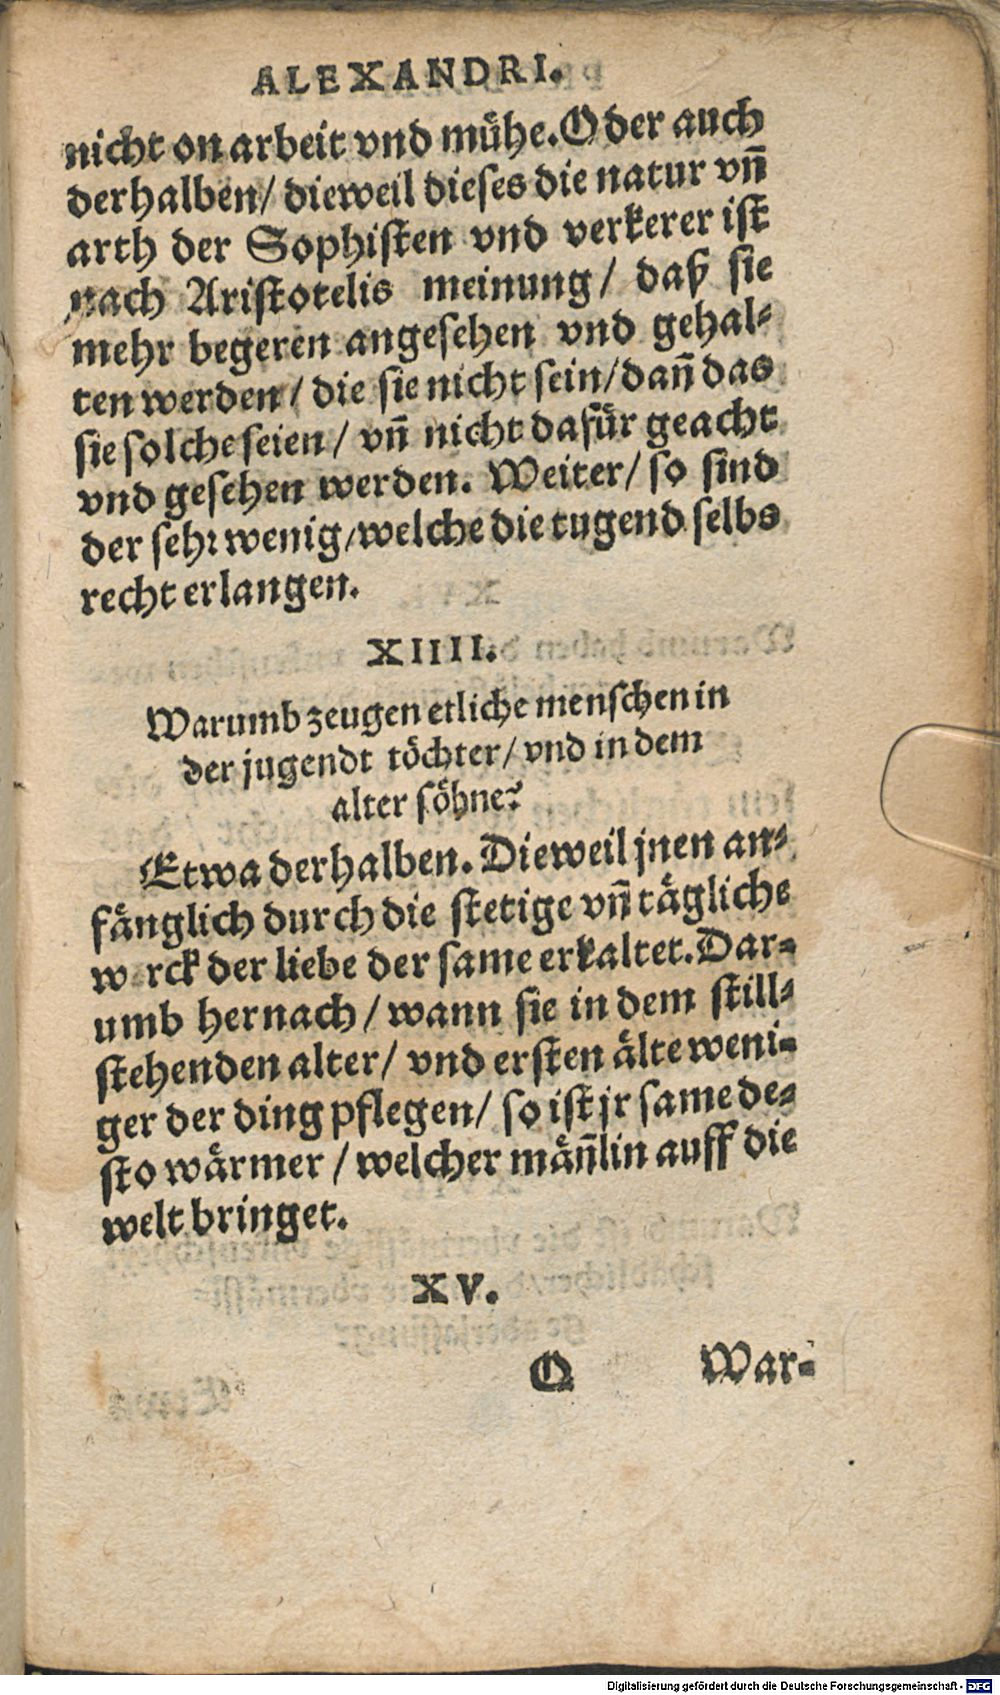 ALEXANDRI.
nicht on arbeit vnd mühe. Oder auch
derhalben/ dieweil dieses die natur vñ
arth der Sophisten vnd verkerer ist
nach Aristotelis meinung/ daß sie
mehr begeren angesehen vnd gehal-
ten werden/ die sie nicht sein/ dañ das
sie solche seien/ vñ nicht dafür geacht
vnd gesehen werden. Weiter/ so sind
der sehr wenig/ welche die tugend selbs
recht erlangen.
XIIII.
Warumb zeugen etliche menschen in
der jugendt töchter/ vnd in dem
alter söhne?
Etwa derhalben. Dieweil jnen an-
fänglich durch die stetige vñ tägliche
w rck der liebe der same erkaltet. Dar-
umb hernach/ wann sie in dem still-
stehenden alter/ vnd ersten älte weni-
ger der ding pflegen/ so ist jr same de-
sto wärmer/ welcher mäñlin auff die
welt bringet.
XV.
Q War-
Digitalisierung gefördert durch die Deutsche Forschungsgemeinschaft - DFG